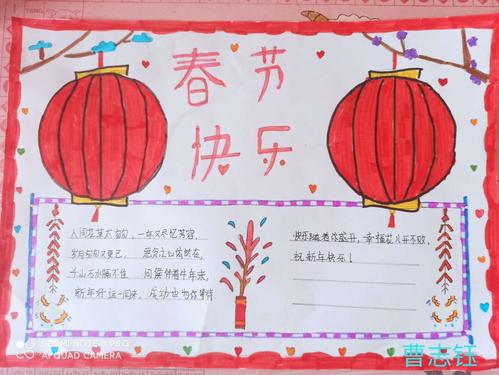 春节
快乐
人间花落太匆匆，一年又尽忆芳容，
岁月匆匆又更已， 思念让心依然在，
千山石水隔不住 问候伴着牛年来，
新年好运一同来，成功也为你等待
快乐随着你盛开，幸福花儿开不败，
祝新年快乐！
REDMI NOTE 8 PRO
AI QUAD CAMERA
曹志钰